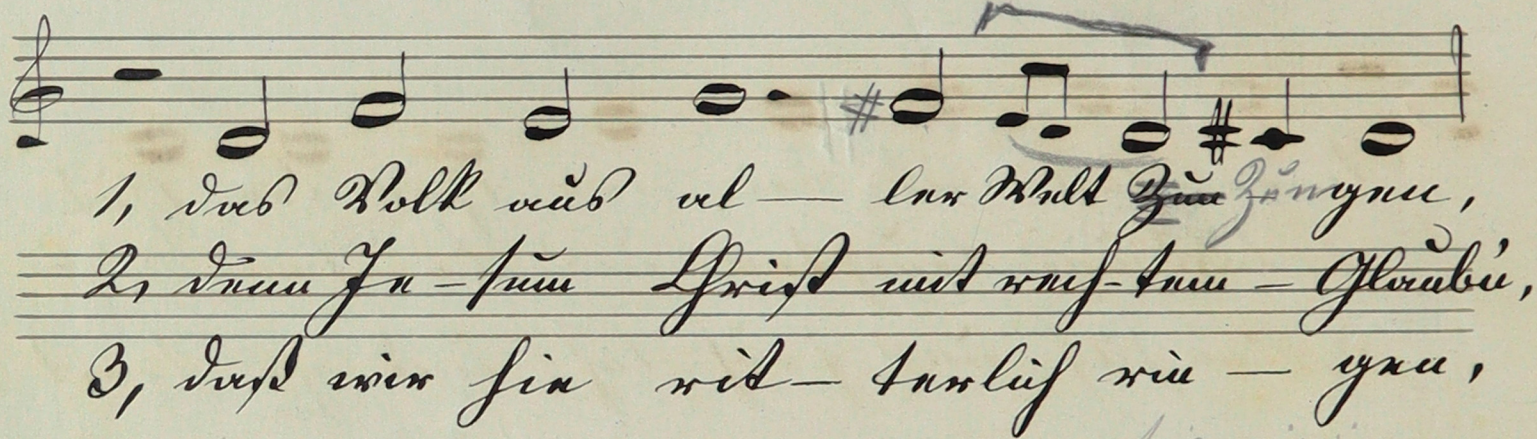 1, das Volk aus al— ler Welt Zun Zungen,
2, denn Je-sum Christ mit rech-tem – Glaub'n,
3, daß wir hie rit– terlich rin — gen,